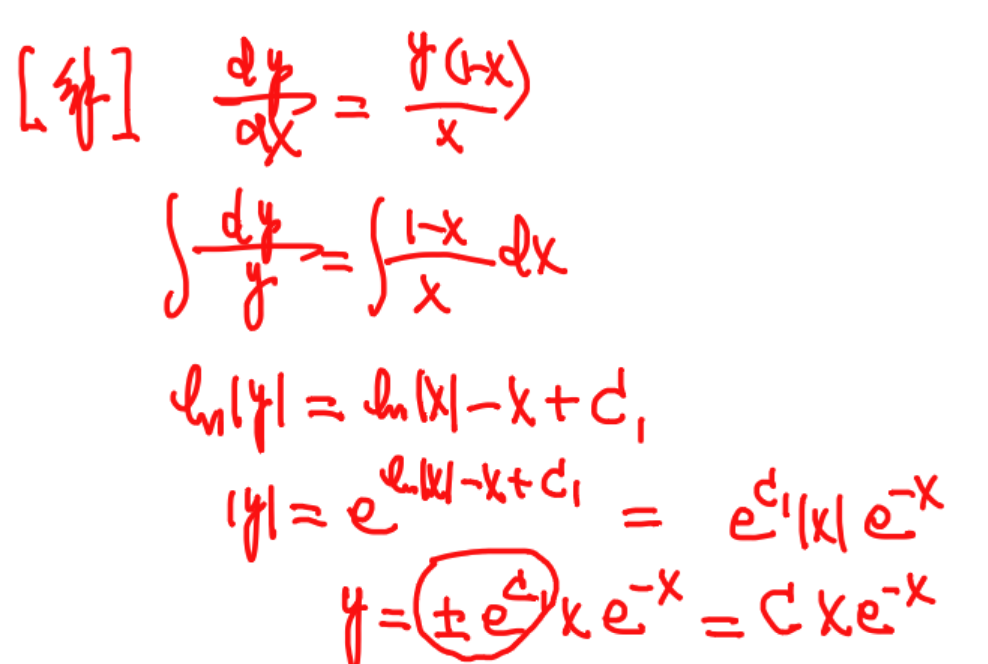 [解] dy/dx = y(1-x)/x
∫ dy/y = ∫ (1-x)/x dx
ln|y| = ln|x| - x + C₁
|y| = e^(ln|x| - x + C₁) = e^(C₁)|x|e^(-x)
y = ±e^(C₁) x e^(-x) = C x e^(-x)